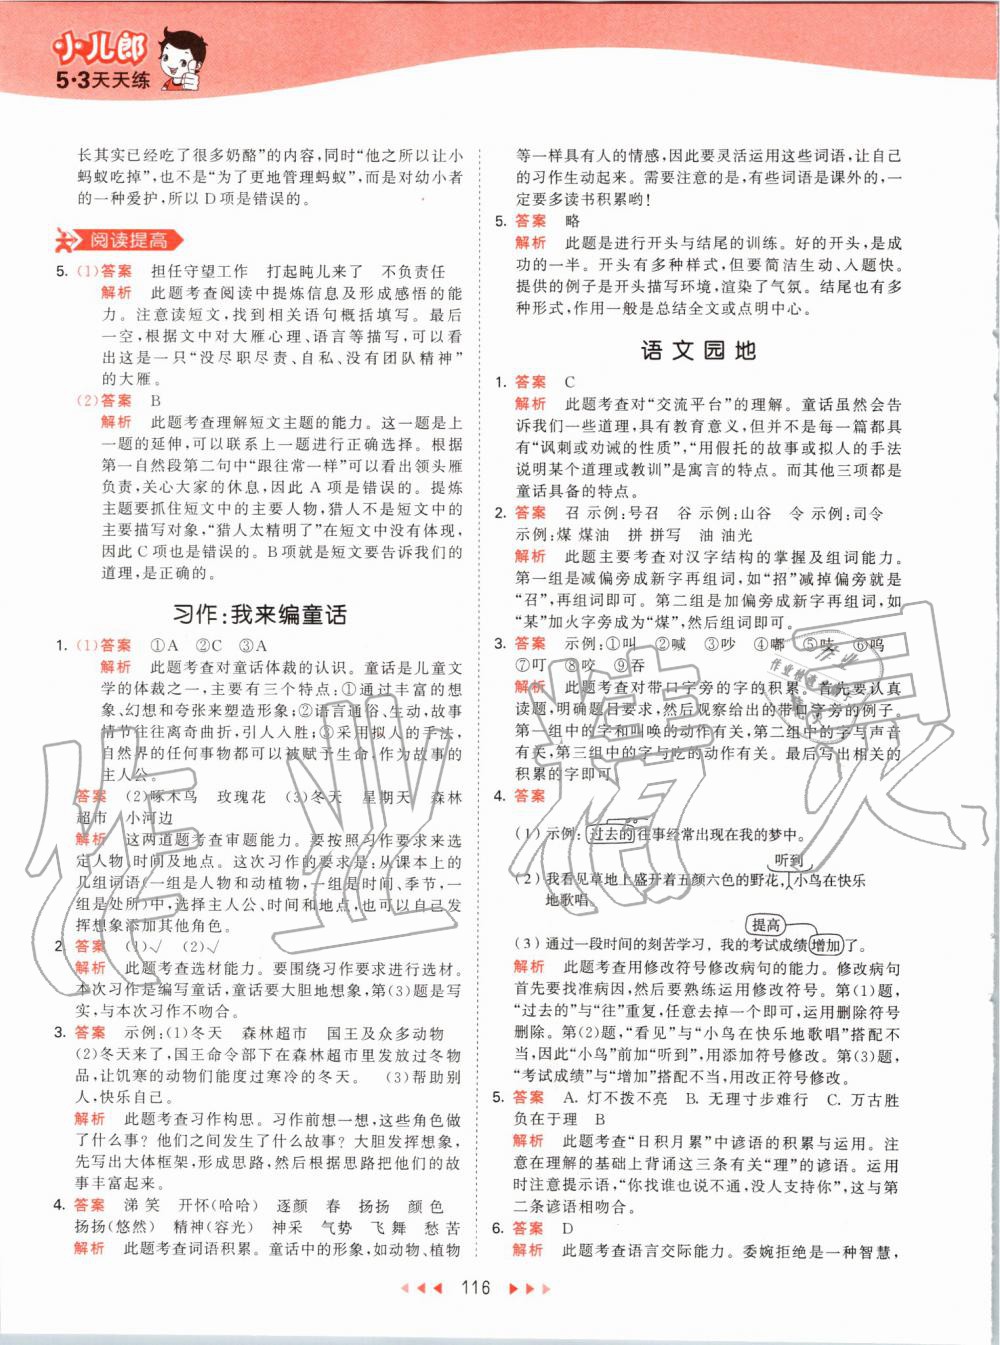 小儿郎
5·3天天练
长其实已经吃了很多奶酪”的内容,同时“他之所以让小
蚂蚁吃掉”,也不是“为了更地管理蚂蚁”,而是对幼小者
的一种爱护,所以 D 项是错误的。
阅读提高
5. (1)答案 担任守望工作 打起盹儿来了 不负责任
解析 此题考查阅读中提炼信息及形成感悟的能
力。注意读短文,找到相关语句概括填写。最后
一空,根据文中对大雁心理、语言等描写,可以看
出这是一只“没尽职尽责、自私、没有团队精神”
的大雁。
(2)答案 B
解析 此题考查理解短文主题的能力。这一题是上
一题的延伸,可以联系上一题进行正确选择。根据
第一自然段第二句中“跟往常一样”可以看出领头雁
负责,关心大家的休息,因此 A 项是错误的。提炼
主题要抓住短文中的主要人物,猎人不是短文中的
主要描写对象,“猎人太精明了”在短文中没有体现,
因此 C 项也是错误的。B 项就是短文要告诉我们的
道理,是正确的。
习作:我来编童话
1. (1)答案 ①A ②C ③A
解析 此题考查对童话体裁的认识。童话是儿童文
学的体裁之一,主要有三个特点:①通过丰富的想
象、幻想和夸张来塑造形象;②语言通俗、生动,故事
情节往往离奇曲折,引人入胜;③采用拟人的手法,
自然界的任何事物都可以被赋予生命,作为故事的
主人公。
答案 (2)啄木鸟 玫瑰花 (3)冬天 星期天 森林
超市 小河边
解析 这两道题考查审题能力。要按照习作要求选
定人物、时间及地点。这次习作的要求是:从课本上的
几组词语(一组是人物和动植物,一组是时间、季节,一
组是处所)中,选定时间、地点、人物,也可以自己发
挥想象添加其他角色。
2. 答案 (1)√ (2)√
解析 此题考查选材能力。要围绕习作要求进行选材。
本次习作是编写童话,童话要大胆地想象,第(3)题是写
实,与本次习作不吻合。
3. 答案 示例:(1)冬天 森林超市 国王及众多动物
(2)冬天来了,国王命令部下在森林超市里发过冬物
品,让饥寒的动物们能度过寒冷的冬天。 (3)帮助别
人,快乐自己。
解析 此题考查习作构思。习作前想一想,这些角色做
了什么事?他们之间发生了什么故事?大胆发挥想象,
先写出大体框架,形成思路,然后让我们的童话故
事丰富起来。
4. 答案 涕 笑 开怀(哈哈) 逐颜 春 扬扬 颜 色
扬扬(悠然) 精神(容光) 神采 气势 飞 舞 愁 苦
解析 此题考查词语积累。童话中的形象,如动物、植物
等一样具有人的情感,因此要灵活运用这些词语,让我们
的习作生动起来。需要注意的是,有些词语是课外的,一
定要多读书积累哟!
5. 答案 略
解析 此题是进行开头与结尾的训练。好的开头,是成
功的一半。开头有多种样式,但要简洁生动、入题快。
提供的例子是开头描写环境,渲染了气氛。结尾也有多
种形式,作用一般是总结全文或点明中心。
语文园地
1. 答案 C
解析 此题考查对“交流平台”的理解。童话虽然会告
诉我们一些道理,具有教育意义,但并不是每一篇都具
有“讽刺或劝诫的性质”,“用假托的故事或拟人的手法
说明某个道理或教训”是寓言的特点。而其他三项都是
童话具备的特点。
2. 答案 召 示例:号召 谷 示例:山谷 令 示例:司令
示例:煤 煤油 拼 拼写 油 油光
解析 此题主要考查对汉字结构的掌握及组词能力。
第一组是减偏旁成新字再组词,如“招”减掉偏旁就是
“召”,再组词即可。第二组是加偏旁成新字再组词,如
“某”加火字旁成为“煤”,然后组词即可。
3. 答案 示例:①叫 ②喊 ③吵 ④嘟 ⑤吱 ⑥呜
⑦叮 ⑧吃 ⑨吞
解析 此题考查对带口字旁的字的积累。首先要认真
读题,明确题目要求,然后观察给出的带口字旁的例子。
第一组中的字和叫唤的动作有关,第二组中的字与声音
有关,第三组中的字与吃的动作有关。最后写出相关的
积累的字即可。
4. 答案
(1) 示例:过去的往事经常出现在我的梦中。
听到
(2) 我看见草地上盛开着五颜六色的野花,小鸟在快乐
地歌唱。
提高
(3) 通过一段时间的刻苦学习,我的考试成绩增加了。
解析 此题考查用修改符号修改病句的能力。修改病句
首先要找准病因,然后要熟练运用修改符号。第(1)题,
“过去的”与“往”重复,任意去掉一个即可,运用删除符号
删除。第(2)题,“看见”与“小鸟在快乐地歌唱”搭配不
当,因此“小鸟”前加“听到”,用添加符号修改。第(3)题,
“考试成绩”与“增加”搭配不当,用改正符号修改。
5. 答案 A. 灯不拨不亮 B. 无理寸步难行 C. 万古胜
负在于理 B
解析 此题考查“日积月累”中谚语的积累与运用。注
意在理解的基础上背诵这三条有关“理”的谚语。运用
时注意提示语,“你找谁也说不通,没人支持你”,这与第
二条谚语相吻合。
6. 答案 D
解析 此题考查语言交际能力。委婉拒绝是一种智慧,
116
作业精灵